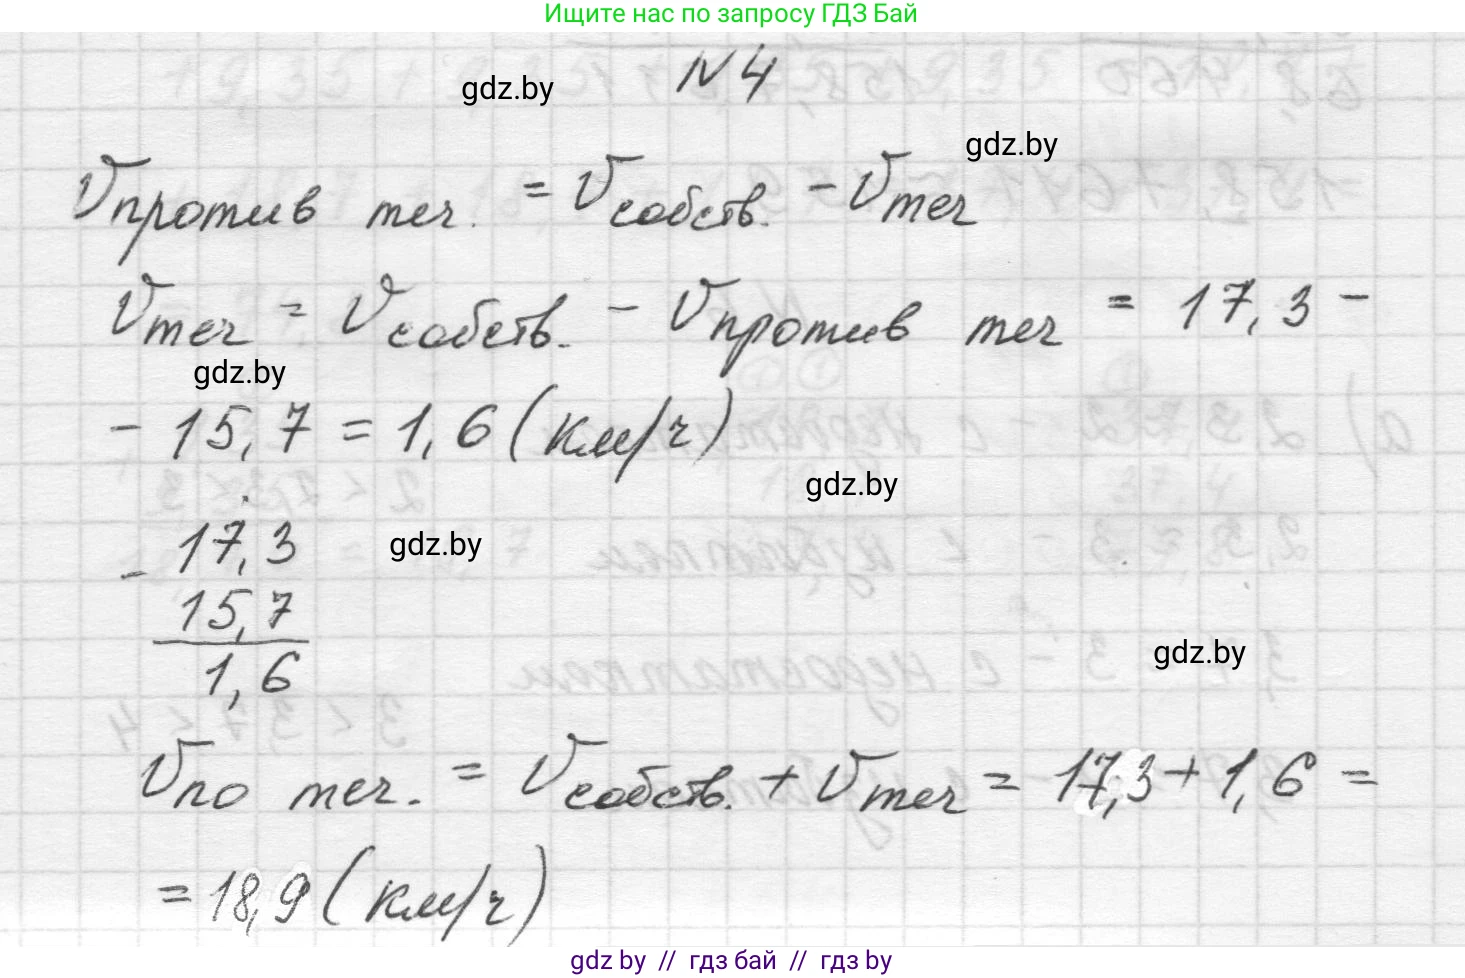 Ищите нас по запросу ГДЗ Бай
N4
gdz.by
gdz.by
Vпротив теч. = Vсобств. - Vтеч
Vтеч = Vсобств. - Vпротив теч = 17,3 -
gdz.by
- 15,7 = 1,6 (км/ч)
gdz.by
- 17,3
gdz.by
15,7
1,6
gdz.by
Vпо теч. = Vсобств. + Vтеч = 17,3 + 1,6 =
= 18,9 (км/ч)
gdz by // гдз бай // гдз by